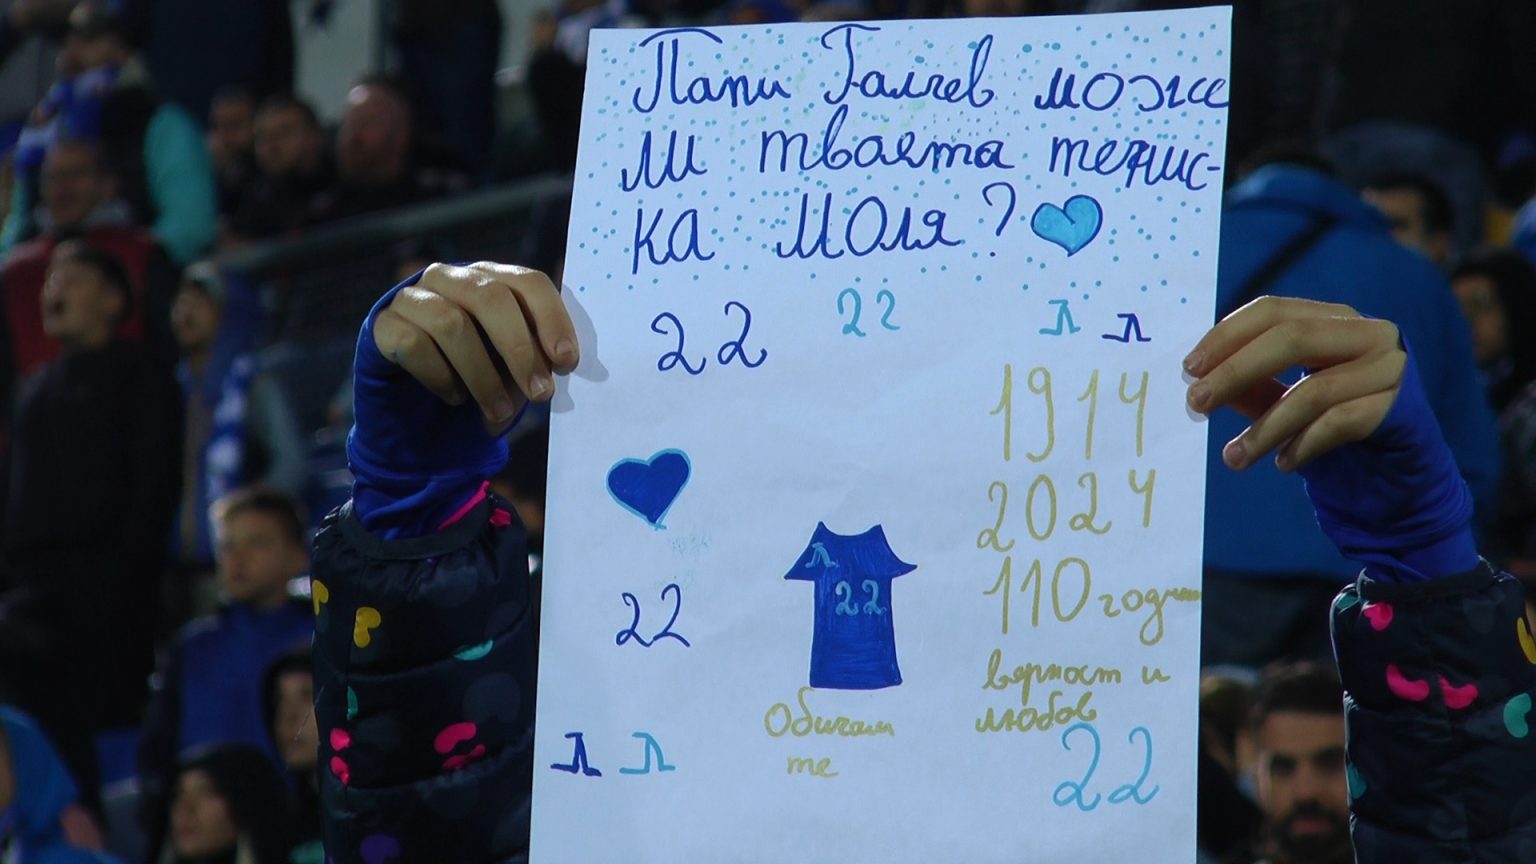 Папи Галчев може
ли твоята тенис-
ка Моля?
22
22
Л Л
1914
2024
110 години
верност и
любов
22
22
Л
22
Обичам
те
Л Л